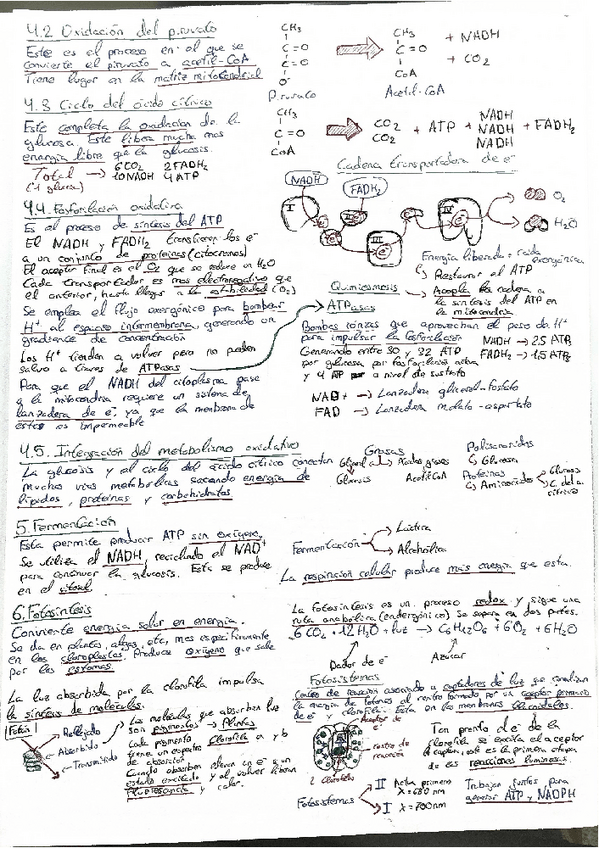 4.2 Oxidación del piruvato
Este es el proceso en el que se
convierte el piruvato a acetil-CoA
Tiene lugar en la matriz mitocondrial
CH3
C=O
C=O
O-
Piruvato
CH3
C=O
CoA
Acetil-CoA
+ NADH
+ CO2
4.3 Ciclo del ácido cítrico
Este completa la oxidación de la
glucosa. Este libera mucha mas
energía libre que la glucosis.
Total → 6CO2 2FADH2
(1 glucosa) 10NADH 4ATP
CH3
C=O
CoA
CO2
CO2
+ ATP +
NADH
NADH
NADH
+ FADH2
Cadena transportadora de e-
NADH
FADH2
O2
H2O
4.4. Fosforilación oxidativa
Es el proceso de síntesis del ATP
El NADH y FADH2 transfieren los e-
a un conjunto de proteínas (citocromos)
El aceptor final es el O2 que se reduce en H2O
Cada transportador es mas electronegativo que
el anterior, hasta llegar a la estabilidad (O2)
Se emplea el flujo exergónico para bombear
H+ al espacio intermembrana, generando un
gradiente de concentración
Los H+ tienden a volver pero no pueden
salvo a traves de ATPasas
Para que el NADH del citoplasma pase
a la mitocondria requiere un sistema de
lanzadera de e- ya que la membrana de
estas es impermeable
Energía liberada = caída exergónica
Restaurar el ATP
Quimiosmosis
Acopla la cadena a
la síntesis del ATP en
la mitocondria
ATPasas
Bombas iónicas que aprovechan el paso de H+
para impulsar la fosforilación
Generando entre 30 y 32 ATP
por glucosa por fosforilación activa
y 4 ATP a nivel de sustrato
NADH → 2.5 ATP
FADH2 → 1.5 ATP
NAD+ → Lanzadera glicerol-fosfato
FAD → Lanzadera malato-aspartato
4.5. Integración del metabolismo oxidativo
La glucosis y el ciclo del ácido cítrico conectan
muchas vías metabólicas sacando energía de
lípidos, proteínas y carbohidratos.
Grasas
Glicerol Ácidos grasos
Glucosis Acetil CoA
Polisacáridos
Glucosa
Proteínas
Aminoácidos
Glucosis
C. del a.
cítrico
5. Fermentación
Esta permite producir ATP sin oxígeno.
Se utiliza el NADH, reciclando el NAD+
para continuar la glucosis. Esta se produce
en el citosol.
Fermentación
Láctica
Alcohólica
La respiración celular produce mas energía que esta.
6. Fotosíntesis
Convierte energía solar en energía.
Se da en plantas, algas, etc, mas específicamente
en los cloroplastos. Produce oxígeno que sale
por las estomas.
La luz absorbida por la clorofila impulsa
la síntesis de moléculas.
La fotosíntesis es un proceso redox y sigue una
ruta anabólica (endergónica) Se separa en dos partes.
6CO2 + 12H2O + luz → C6H12O6 + 6O2 + 6H2O
Dador de e-
Azúcar
Reflejado
Absorbido
Transmitido
Las moléculas que absorben luz
son pigmentos → Plantas
Clorofila a y b
Cada pigmento
tiene un espectro
de absorción
Cuando absorben elevan un e- a un
estado excitado y al volver liberan
fluorescencia y calor.
Fotosistemas
Centro de reacción asociado a captadores de luz que canalizan
la energía de fotones al centro formado por un aceptor primario
de e- y clorofila. Esta en las membranas tilacoidales.
Aceptor de
e-
centro de
reacción
2 Clorofilas
Ton pronto el e- de la
clorofila se excita el aceptor
lo captura, este es la primera etapa
de las reacciones luminosas.
Fotosistemas
II Activa primero
λ=680 nm
I λ=700nm
Trabajan juntos para
generar ATP y NADPH